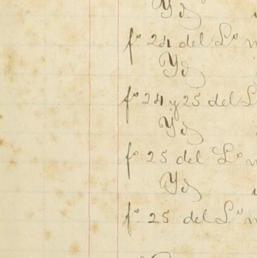 Yd
fº 24 del Lº
Yd
fº 24 y 25 del L
Yd
fº 25 del Lº
Yd
fº 25 del Lº